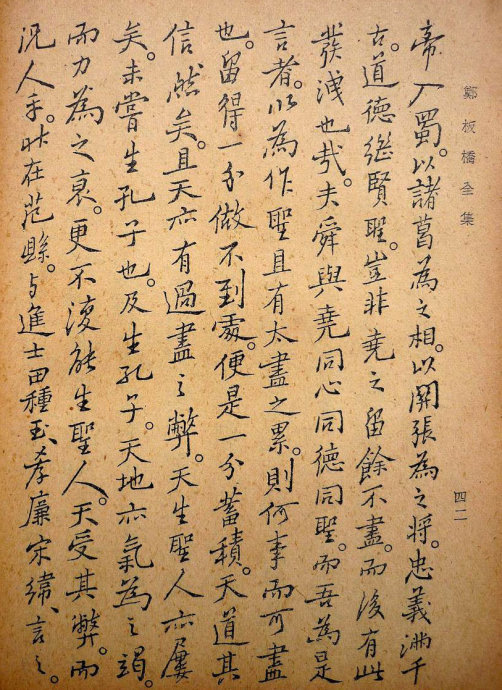 鄭板橋全集
四二
帝入蜀。以諸葛為之相。以關張為之將。忠義滿千
古。道德継賢聖。豈非堯之留餘不盡。而後有此
發洩也哉。夫舜與堯同心同德同聖。而吾為是
言者。以為作聖且有太盡之累。則何事而可盡
也。留得一分做不到處。便是一分蓄積。天道其
信然矣。且天亦有過盡之弊。天生聖人亦屢
矣。未嘗生孔子也。及生孔子。天地亦氣為之竭。
而力為之衰。更不復能生聖人。天受其弊。而
況人乎。昨在范縣。与進士田種玉、孝廉宋緯、言之。